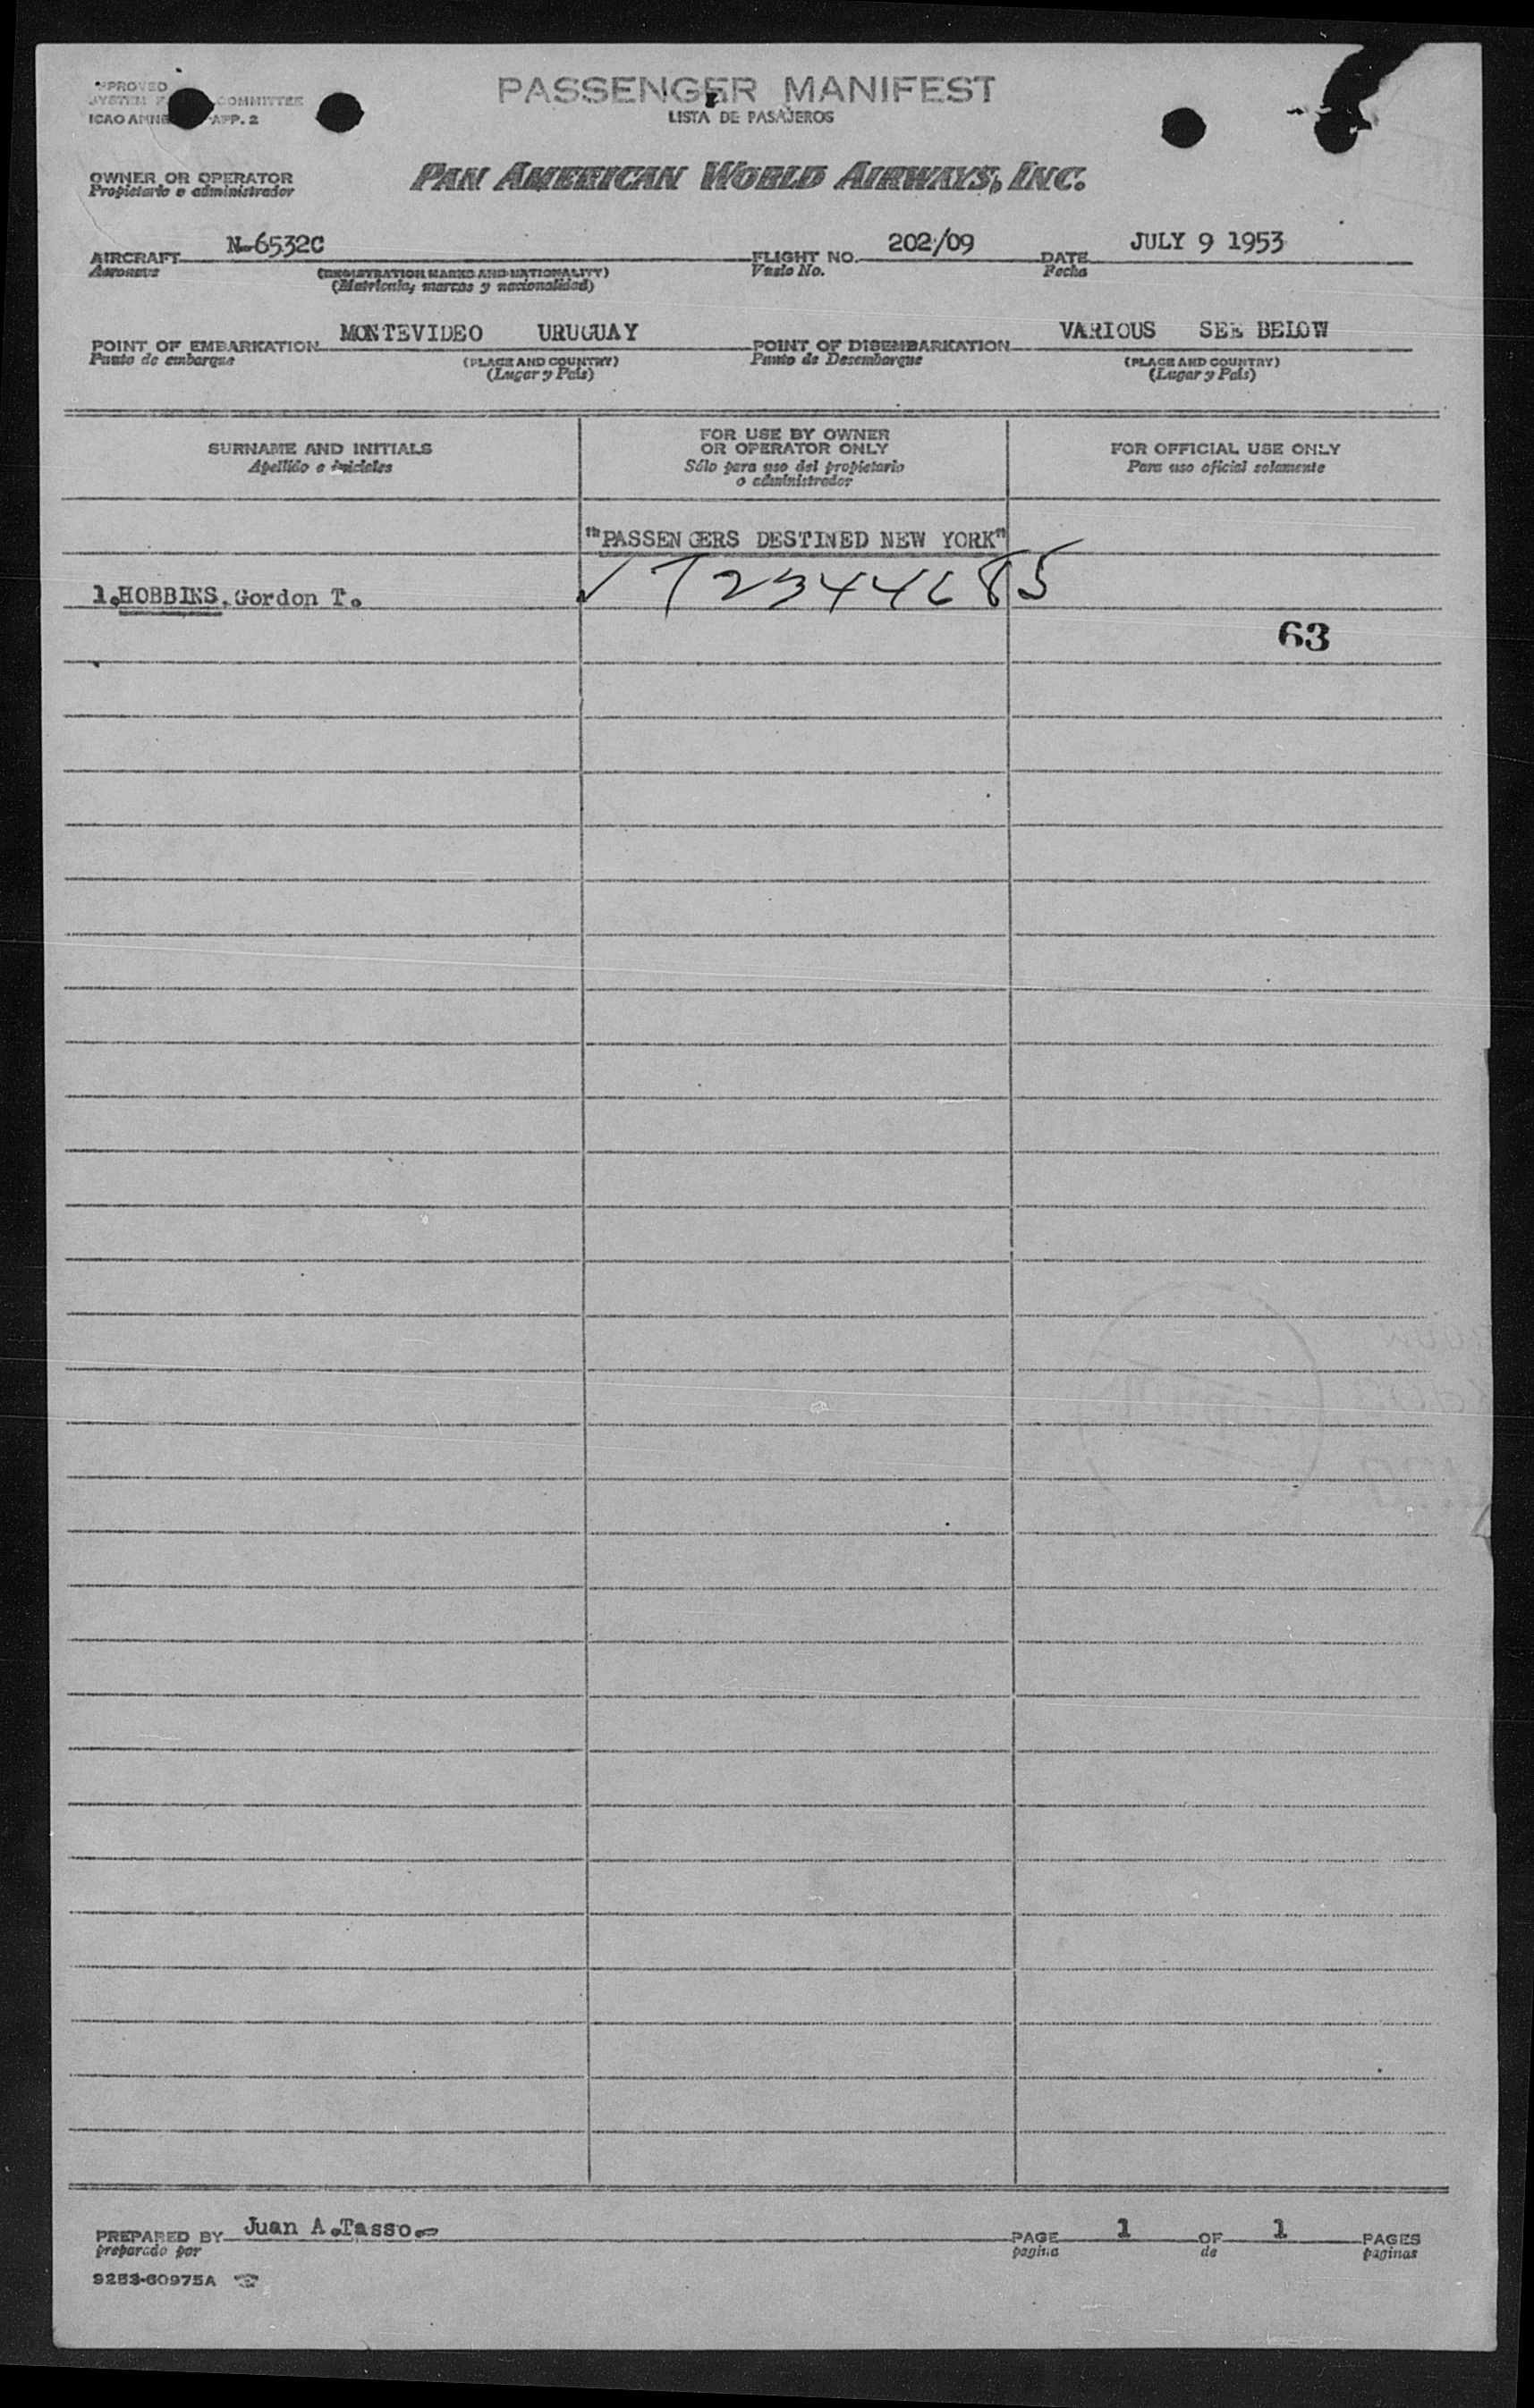 PASSENGER MANIFEST
LISTA DE PASAJEROS
APPROVED
SYSTEM COMMITTEE
ICAO APP. 2
OWNER OR OPERATOR
Propietario o administrador
PAN AMERICAN WORLD AIRWAYS, INC.
AIRCRAFT N-6532C FLIGHT NO. 202/09 DATE JULY 9 1953
Aeronave (REGISTRATION MARKS AND NATIONALITY) Vuelo No. Fecha
(Matricula, marcas y nacionalidad)
POINT OF EMBARKATION MONTEVIDEO URUGUAY POINT OF DISEMBARKATION VARIOUS SEE BELOW
Punto de embarque (PLACE AND COUNTRY) Punto de Desembarque (PLACE AND COUNTRY)
(Lugar y País) (Lugar y País)
SURNAME AND INITIALS
Apellido e iniciales
FOR USE BY OWNER
OR OPERATOR ONLY
Sólo para uso del propietario
o administrador
FOR OFFICIAL USE ONLY
Para uso oficial solamente
"PASSENGERS DESTINED NEW YORK"
1.HOBBINS, Gordon T. ✓
63
PREPARED BY Juan A.Tasso.- PAGE 1 OF 1 PAGES
preparado por pagina de paginas
9253-60975A